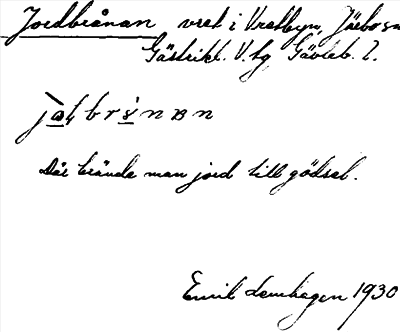 Jordbrånan vret i Vretbyn, Järbo sn
Gästrikl. V. tg Gävleb. l.
Där brände man jord till gödsel.
Emil Lemhagen 1930